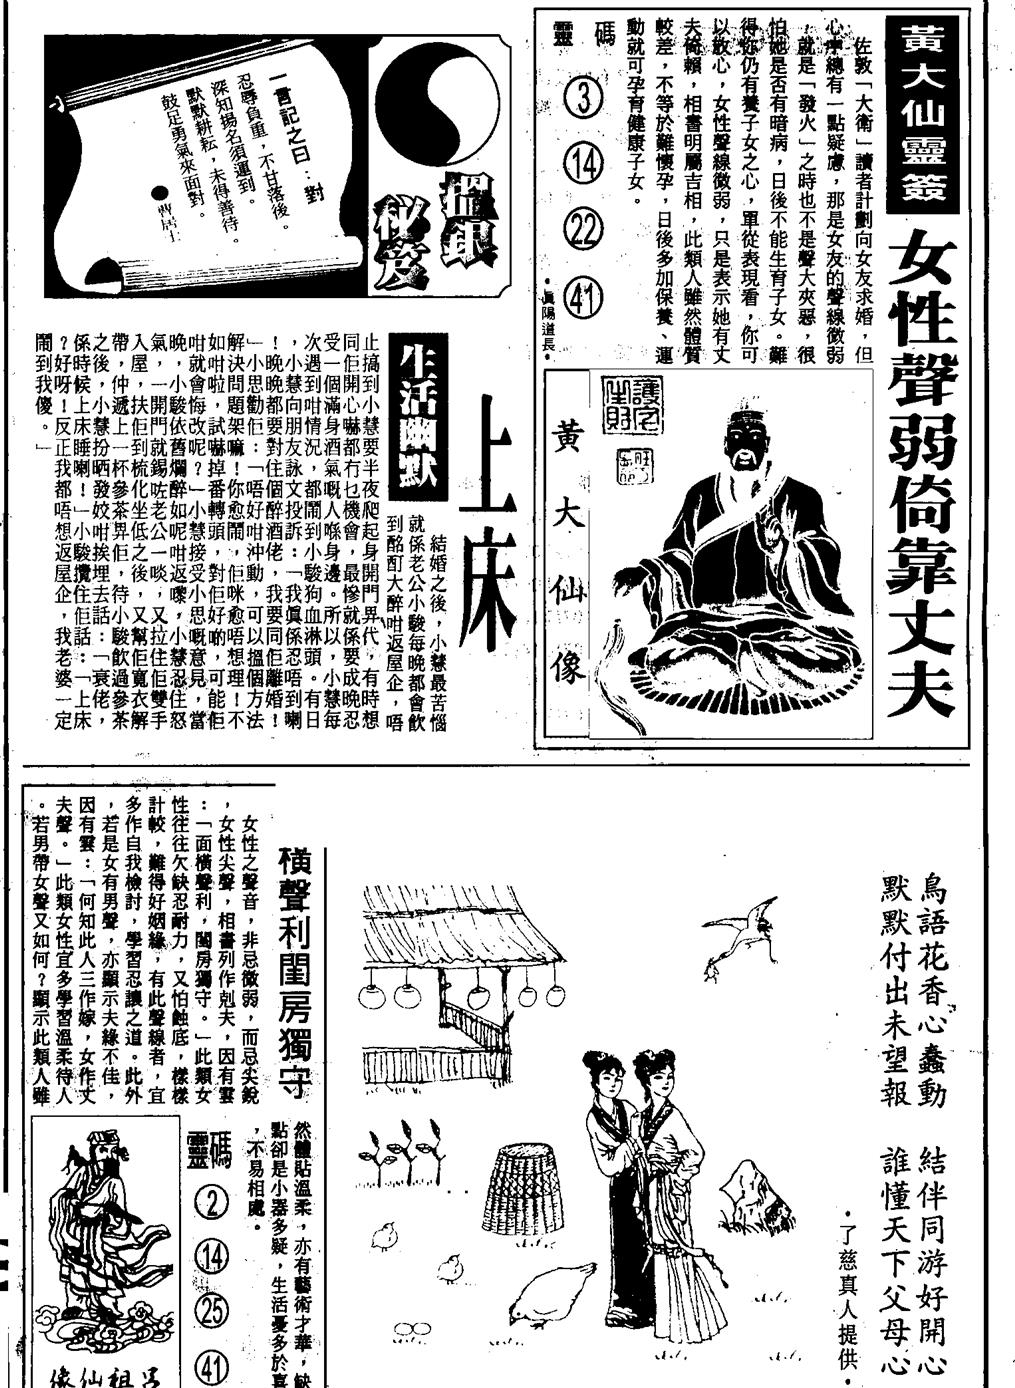 黃大仙靈簽
女性聲弱倚靠丈夫
佐敦「大衛」讀者計劃向女友求婚，但
心中總有一點疑慮，那是女友的聲線微弱
，就是「發火」之時也不是聲大夾惡，很
怕她是否有暗病，日後不能生育子女。難
得你仍有養子女之心，單從表現看，你可
以放心，女性聲線微弱，只是表示她有丈
夫倚賴，相書明屬吉相，此類人雖然體質
較差，不等於難懷孕，日後多加保養、運
動就可孕育健康子女。
靈碼
3
14
22
41
•真陽道長•
護宅
生財
黃大仙像
搵銀
秘笈
一言記之曰：對
忍辱負重，不甘落後。
深知揚名須運到。
默默耕耘，未得善待。
鼓足勇氣來面對。
●曹居士
生活幽默
上床
結婚之後，小慧最苦惱
就係老公小駿每晚都會飲
到酩酊大醉咁返屋企，唔
止搞到小慧要半夜爬起身開門畀代，有時想
同佢開心嚇都冇乜機會，最慘就係要成晚忍
受一個滿身酒氣嘅人喺身邊。所以，小慧每
次遇到咁情況，都鬧到小駿狗血淋頭。有日
，小慧向朋友詠文投訴：「我真係忍唔到喇
！晚晚都要對住個醉酒佬，我要同佢離婚！
」小思勸佢：「唔好咁沖動，可以搵個方法
解決問題架嘛！你愈鬧，佢咪愈唔想理！不
如咁啦，試嚇掉番轉頭，對佢好啲，可能佢
咁就會悔改呢？」小慧接受小思嘅意見，當
晚，小駿依舊爛醉如呢咁返嚟，小慧忍住怒
氣，一開門就錫咗老公一啖，又拉住佢雙手
入屋，扶佢到梳化坐低之後，又幫佢寬衣解
帶，仲遞上一杯參茶畀佢，待小駿飲過參茶
之後，小慧扮晒發姣咁挨埋去話：「衰佬，
係時候上床睡喇！」小駿攬住佢話：「上床
？好呀！反正我都唔想返屋企，我老婆一定
鬧到我傻。」
橫聲利閨房獨守
女性之聲音，非忌微弱，而忌尖銳
，女性尖聲，相書列作剋夫，因有雲
：「面橫聲利，閨房獨守。」此類女
性往往欠缺忍耐力，又怕蝕底，樣樣
計較，難得好姻緣，有此聲線者，宜
多作自我檢討，學習忍讓之道。此外
，若是女有男聲，亦顯示夫緣不佳，
因有雲：「何知此人三作嫁，女作丈
夫聲。」此類女性宜多學習溫柔待人
。若男帶女聲又如何？顯示此類人雖
然體貼溫柔，亦有藝術才華，缺
點卻是小器多疑，生活憂多於喜
，不易相處。
靈碼
2
14
25
41
呂祖仙像
鳥語花香心蠢動　結伴同游好開心
默默付出未望報　誰懂天下父母心
•了慈真人提供•